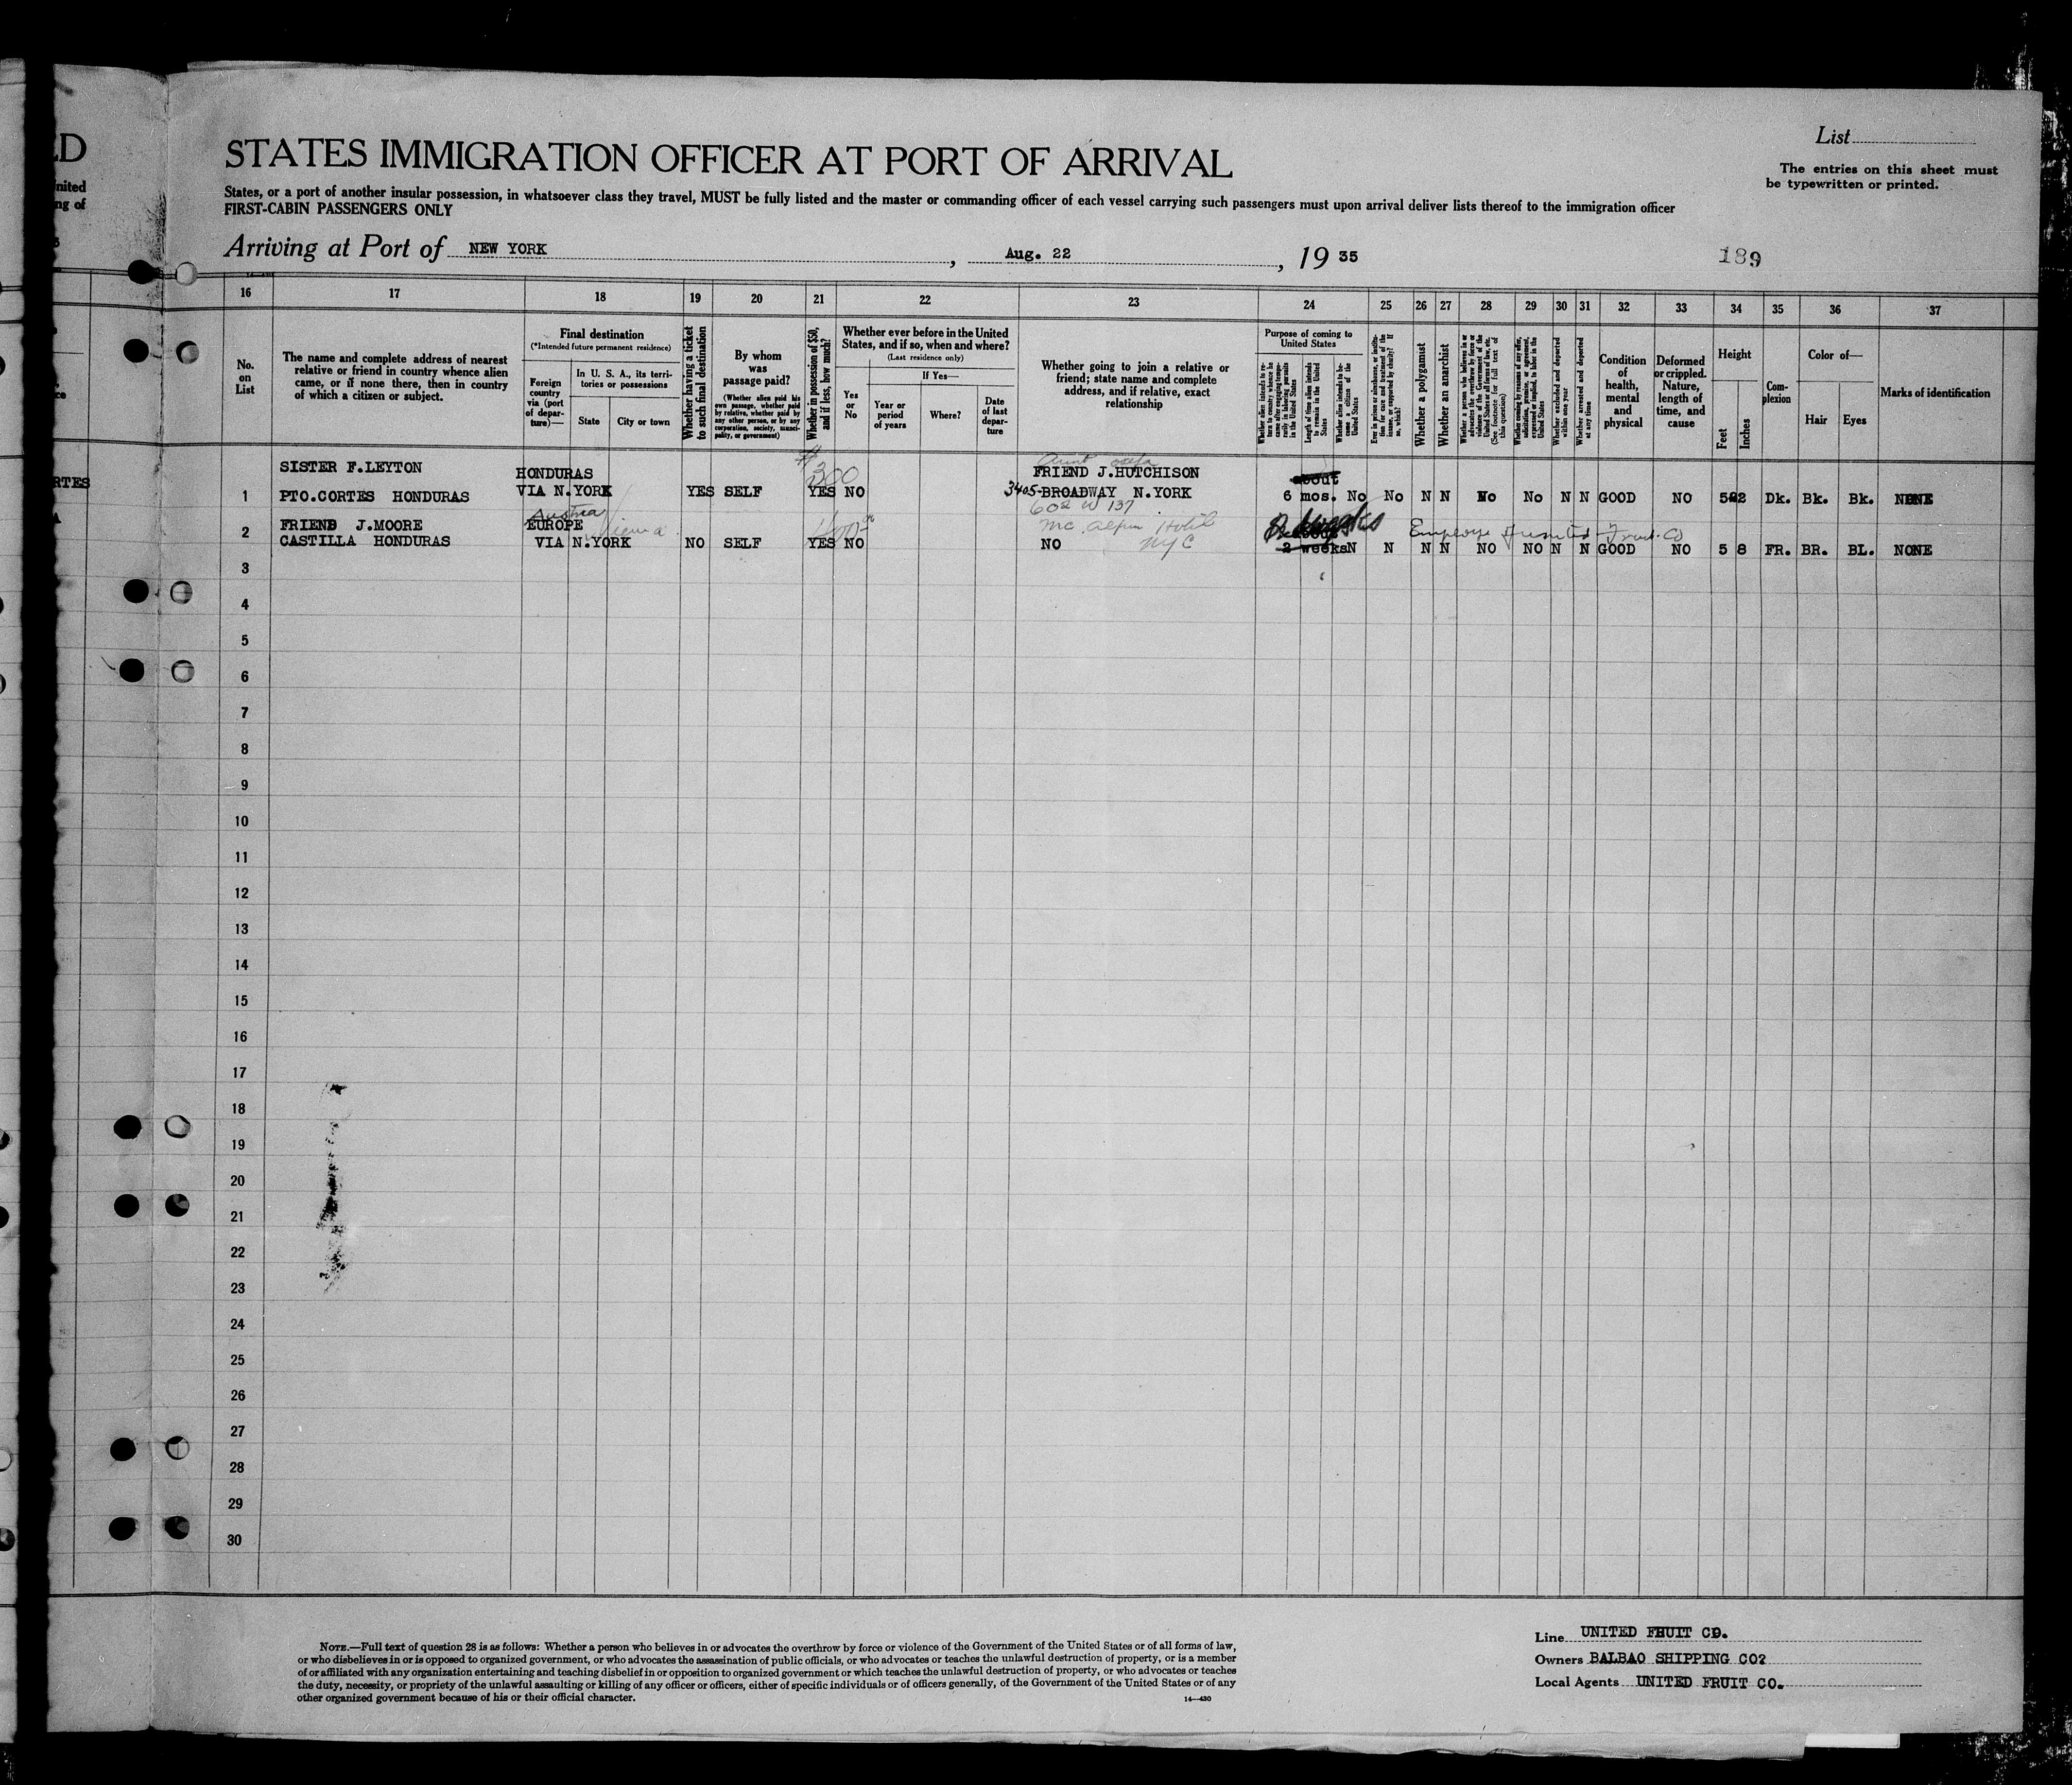 ED
United
ng of
STATES IMMIGRATION OFFICER AT PORT OF ARRIVAL
List
The entries on this sheet must
be typewritten or printed.
States, or a port of another insular possession, in whatsoever class they travel, MUST be fully listed and the master or commanding officer of each vessel carrying such passengers must upon arrival deliver lists thereof to the immigration officer
FIRST-CABIN PASSENGERS ONLY
Arriving at Port of NEW YORK , Aug. 22 , 19 35
189
16 17 18 19 20 21 22 23 24 25 26 27 28 29 30 31 32 33 34 35 36 37
No. on List
The name and complete address of nearest relative or friend in country whence alien came, or if none there, then in country of which a citizen or subject.
Final destination
(*Intended future permanent residence)
Foreign country via (port of departure)—
In U. S. A., its territories or possessions
State
City or town
Whether having a ticket to such final destination
By whom was passage paid?
(Whether alien paid his own passage, whether paid by relative, whether paid by any other person, or by any corporation, society, municipality, or government)
Whether in possession of $50, and if less, how much?
Whether ever before in the United States, and if so, when and where?
(Last residence only)
Yes or No
If Yes—
Year or period of years
Where?
Date of last departure
Whether going to join a relative or friend; state name and complete address, and if relative, exact relationship
Purpose of coming to United States
Whether alien intends to return to country whence he came after engaging temporarily in laboring pursuits in the United States
Length of time alien intends to remain in the United States
Whether alien intends to become a citizen of the United States
Ever in prison or almshouse, or institution for care and treatment of the insane, or supported by charity? If so, which?
Whether a polygamist
Whether an anarchist
Whether a person who believes in or advocates the overthrow by force or violence of the Government of the United States or all forms of law, etc. (See footnote for full text of this question)
Whether coming by reason of any offer, solicitation, promise, or agreement, expressed or implied, to labor in the United States
Whether excluded and deported within one year
Whether arrested and deported at any time
Condition of health, mental and physical
Deformed or crippled. Nature, length of time, and cause
Height
Feet
Inches
Complexion
Color of—
Hair
Eyes
Marks of identification
RTES
SISTER F.LEYTON HONDURAS $300 Aunt FRIEND J.HUTCHISON about
1 PTO.CORTES HONDURAS VIA N.YORK YES SELF YES NO 3405-BROADWAY N.YORK 6 mos. No No N N No No N N GOOD NO 5 2 Dk. Bk. Bk. NONE
602 W 137
Austria
2 FRIEND J.MOORE EUROPE Vienna Mc Alpin Hotel Employe United Fruit Co
CASTILLA HONDURAS VIA N.YORK NO SELF YES NO NO NYC 2 weeks N N N N NO NO N N GOOD NO 5 8 FR. BR. BL. NONE
3
4
5
6
7
8
9
10
11
12
13
14
15
16
17
18
19
20
21
22
23
24
25
26
27
28
29
30
NOTE.—Full text of question 28 is as follows: Whether a person who believes in or advocates the overthrow by force or violence of the Government of the United States or of all forms of law,
or who disbelieves in or is opposed to organized government, or who advocates the assassination of public officials, or who advocates or teaches the unlawful destruction of property, or is a member
of or affiliated with any organization entertaining and teaching disbelief in or opposition to organized government or which teaches the unlawful destruction of property, or who advocates or teaches
the duty, necessity, or propriety of the unlawful assaulting or killing of any officer or officers, either of specific individuals or of officers generally, of the Government of the United States or of any
other organized government because of his or their official character.
14—430
Line UNITED FRUIT CO.
Owners BALBAO SHIPPING CO?
Local Agents UNITED FRUIT CO.